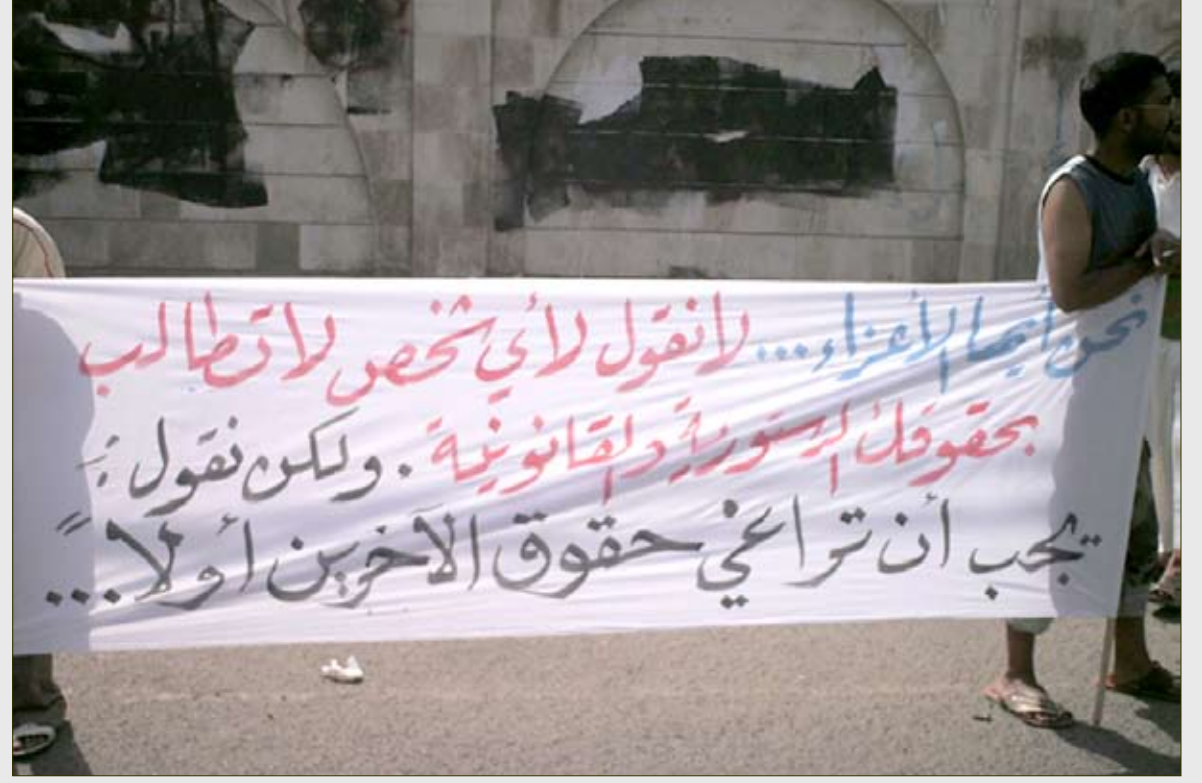 نحن أيها الأعزاء... لا نقول لأي شخص لا تطالب
بحقوقك الدستورية والقانونية. ولكن نقول:
يجب أن تراعي حقوق الآخرين أولاً...